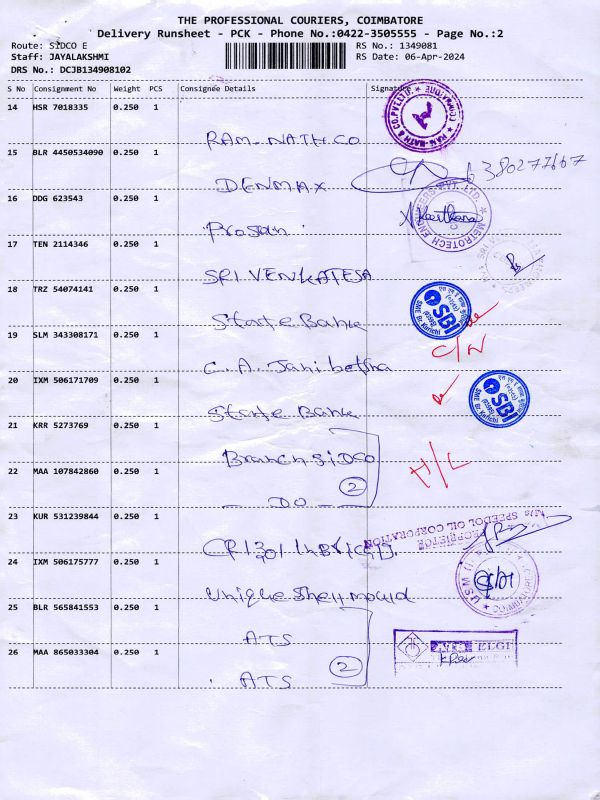 THE PROFESSIONAL COURIERS, COIMBATORE
Delivery Runsheet - PCK - Phone No.:0422-3505555 - Page No.:2
Route: SIDCO E
RS No.: 1349081
Staff: JAYALAKSHMI
RS Date: 06-Apr-2024
DRS No.: DCJB134908102
S No Consignment No Weight PCS Consignee Details Signature
14 HSR 7018335 0.250 1
RAM-NATH.CO
RAM-NATH & CO.PVT.LTD.
15 BLR 4450534090 0.250 1
DENMAX
6380277667
16 DDG 623543 0.250 1
Prosan
Karthana
METROTECH ENGINEERS PVT. LTD.
17 TEN 2114346 0.250 1
SRI VENKATESA
18 TRZ 54074141 0.250 1
State Bank
SBI
19 SLM 343308171 0.250 1
C/N
C.A. Jani betsha
20 IXM 506171709 0.250 1
State Bank
SBI
21 KRR 5273769 0.250 1
Branch SIDCO
22 MAA 107842860 0.250 1
H/L
2
- DO -
23 KUR 531239844 0.250 1
M/s SPEEDOL OIL CORPORATION
PROPRIETOR
24 IXM 506175777 0.250 1
Unique Shell mould
25 BLR 565841553 0.250 1
ATS
26 MAA 865033304 0.250 1
2
ELGI
ATS